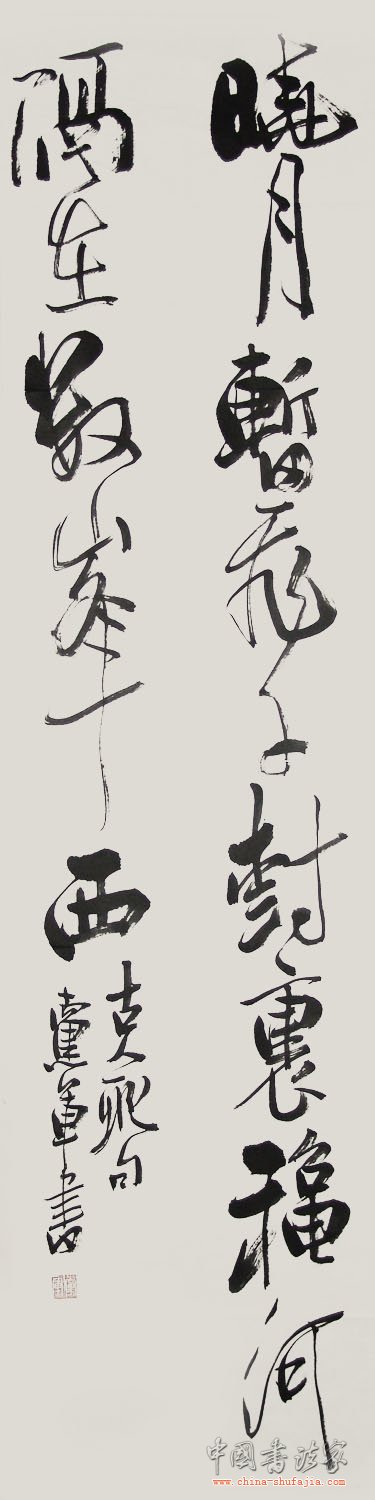 曉月暫飛千樹裏穐河
隔在數峯西
古人聯句
軍書
中國書法家
www.china-shufajia.com